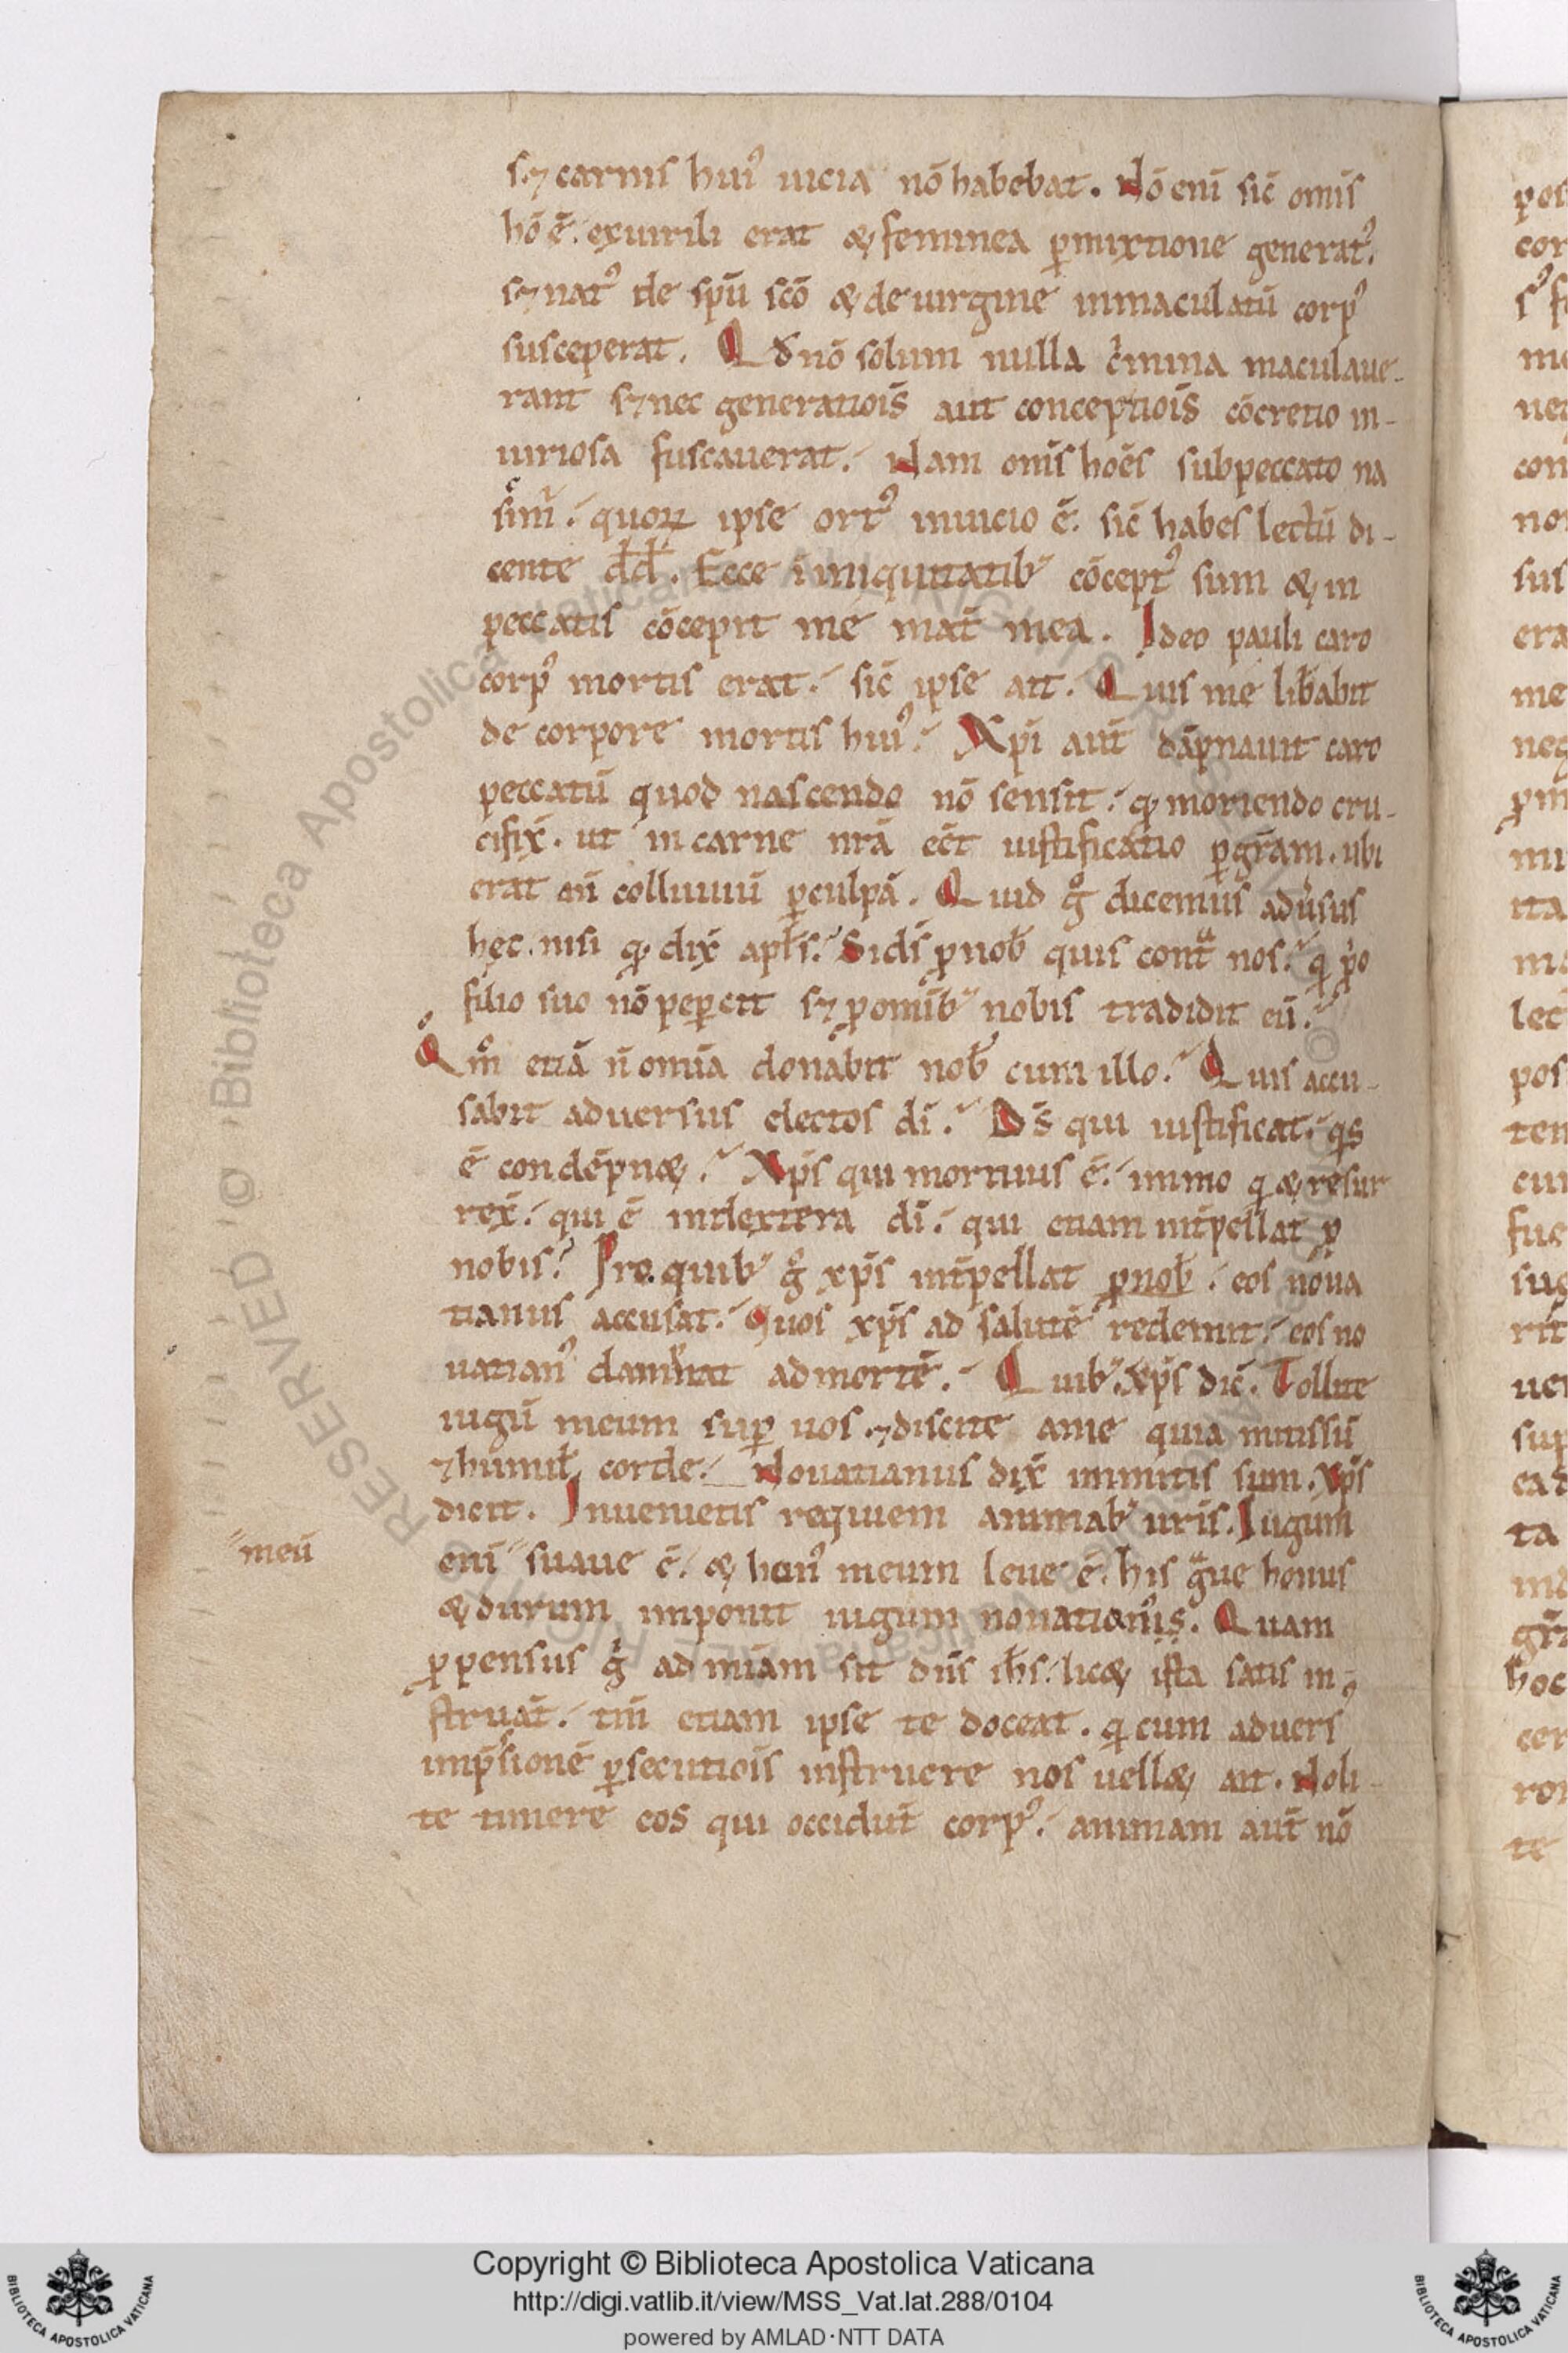 s⁊ carnis hui᷒ uicia nō habebat. Nō eni sic̄ omīs
hō ē. ex uirili erat & feminea ꝑmixtione generat᷒.
s⁊ nat᷒ de spū scō & de uirgine inmaculatū corp᷒
susceperat. Qd nō solum nulla cͥmina maculaue-
rant s⁊ nec generatiōis aut conceptiōis cōcretio in-
iuriosa fuscauerat. Nam om̄s hōes sub peccato na
sim̄. quoꝝ ipse ort᷒ in uicio ē. sic̄ habes lectū di-
cente dd̄. Ecce ī iniquitatib᷒ cōcept᷒ sum & in
peccatis cōcepit me mat̄ mea. Ideo pauli caro
corp᷒ mortis erat. sic̄ ipse ait. Quis me lib̄abit
de corpore mortis hui᷒. Xpi aut̄ dāpnauit caro
peccatū quod nascendo nō sensit. qͦ moriendo cru-
cifix̄. ut in carne nr̄a eēt iustificatio ꝑ gr̄am. ubi
erat an̄ colluuiū ꝑ culpā. Quid gͦ dicemus adūsus
hęc. nisi qͦ dix̄ apl̄s. Si ds̄ ꝓ nob̄ quis contͣ nos. qͥ pͥo
filio suo nō peꝑcit s⁊ ꝓ omīb᷒ nobis tradidit eū.
Qm̊ etiā n̄ omīa donabit nob̄ cum illo. Quis accu-
sabit aduersus electos dī. Ds̄ qui iustificat. qͥs
ē qui condēpn&. Xps̄ qui mortuus ē. immo qͥ & resur
rex̄. qui ē in dextera dī. qui etiam int̄pellat ꝓ
nobis. Pro quib᷒ gͦ xps̄ int̄pellat ꝓ nob̄. eos noua
tianus accusat. Quos xps̄ ad salutē redemit. eos no
uatian᷒ damnat ad mortē. Quib᷒ xps̄ dic̄. Tollite
iugū meum suꝑ uos. ⁊ discite a me quia mitis sū
⁊ humil̄ corde. Nouatianus dix̄ inmitis sum. Xps̄
dicit. Inuenietis requiem animab᷒ uris̄. Iugum
meū
enī suaue ē. & hon᷒ meum leue ē. his gͣue honus
& durum imponit iugum nouatianis. Quam
ꝓpensus gͦ ad mīam sit dn̄s ih̄s. lic& ista satis in
struāt. tm̄ etiam ipse te doceat. qͥ cum aduers᷒
imp̄sionē ꝑsecutiōis instruere nos uell& ait. Noli-
te timere eos qui occidūt corp᷒. animam aut̄ nō
Copyright © Biblioteca Apostolica Vaticana
http://digi.vatlib.it/view/MSS_Vat.lat.288/0104
powered by AMLAD·NTT DATA
BIBLIOTECA APOSTOLICA VATICANA
BIBLIOTECA APOSTOLICA VATICANA